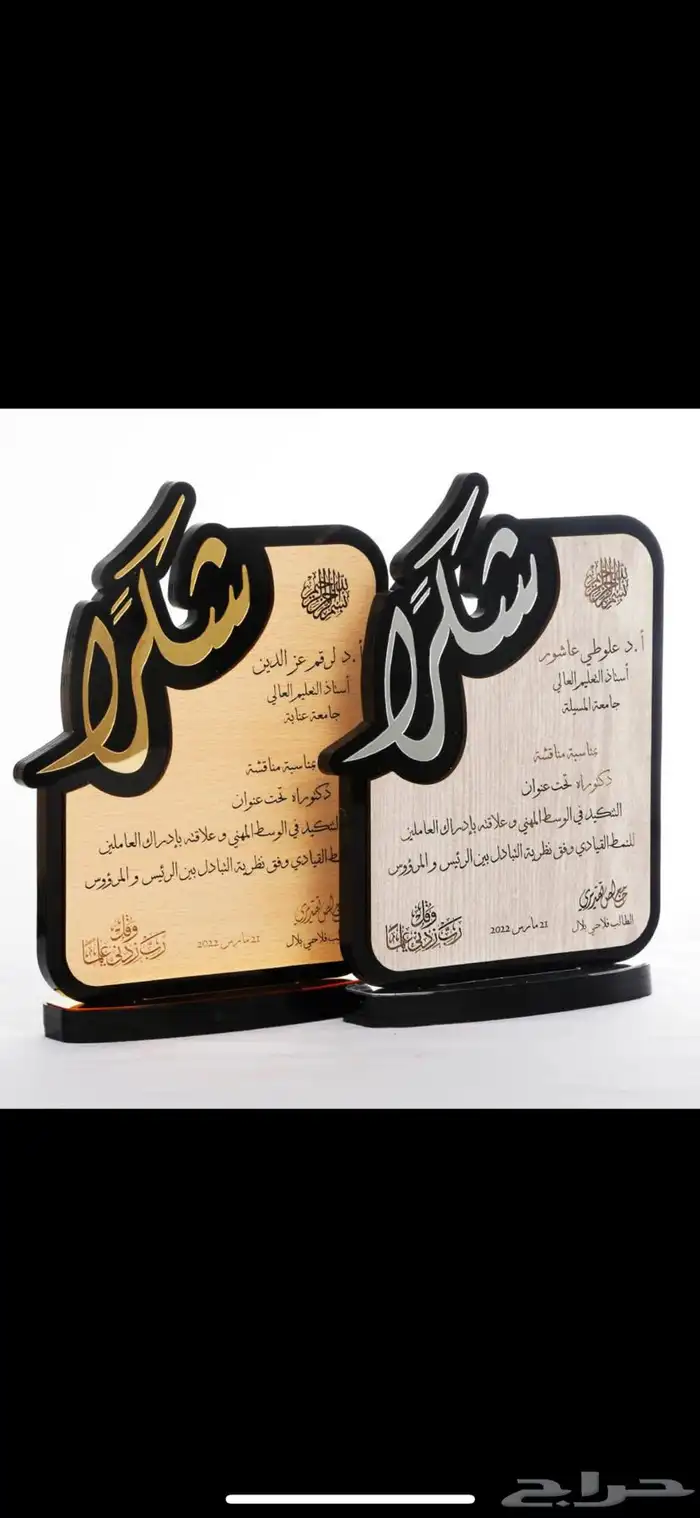 شكرًا
بسم الله الرحمن الرحيم
أ.د لرقم عز الدين
أستاذ التعليم العالي
جامعة عنابة
بمناسبة مناقشة
دكتوراه تحت عنوان
التنكيد في الوسط المهني و علاقته بإدراك العاملين
للنمط القيادي وفق نظرية التبادل بين الرئيس و المرؤوس
وقل رب زدني علما
21 مارس 2022
الطالب فلاحي بلال
شكرًا
بسم الله الرحمن الرحيم
أ.د علوطي عاشور
أستاذ التعليم العالي
جامعة المسيلة
بمناسبة مناقشة
دكتوراه تحت عنوان
التنكيد في الوسط المهني و علاقته بإدراك العاملين
للنمط القيادي وفق نظرية التبادل بين الرئيس و المرؤوس
مع خالص تقديري
الطالب فلاحي بلال
21 مارس 2022
وقل رب زدني علما
حراج